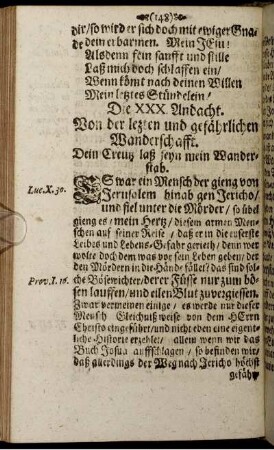 (148)
dir/ so wird er sich doch mit ewiger Gna-
de dein erbarmen. Mein JEsu!
Alsdenn fein sanfft und stille
Laß mich doch schlaffen ein/
Wenn kömt nach deinen Willen
Mein letztes Stündelein/
Die XXX. Andacht.
Von der lezten und gefährlichen
Wanderschafft.
Dein Creutz laß seyn mein Wander-
stab.
Luc. X. 30.
ES war ein Mensch der gieng von
Jerusalem hinab gen Jericho/
und fiel unter die Mörder/ so übel
gieng es/ mein Hertz/ diesem armen Men-
schen auf seiner Reise/ daß er in die euserste
Leibes und Lebens-Gefahr gerieth/ denn wer
wolte doch dem was vor sein Leben geben/ der
den Mördern in die Hände fället? das sind sol-
Prov. I. 16.
che Bösewichter/ derer Füsse nur zum bö-
sen lauffen/ und eilen Blut zuvergiessen.
Zwar vermeinen einige/ es werde nur dieser
Mensch Gleichnißweise von dem HErrn
Christo eingeführt/ und nicht eben eine eigent-
liche Historie erzehlet/ allein wenn wir das
Buch Josua auffschlagen/ so befinden wir/
daß allerdings der Weg nach Jericho höchst
gefähr-